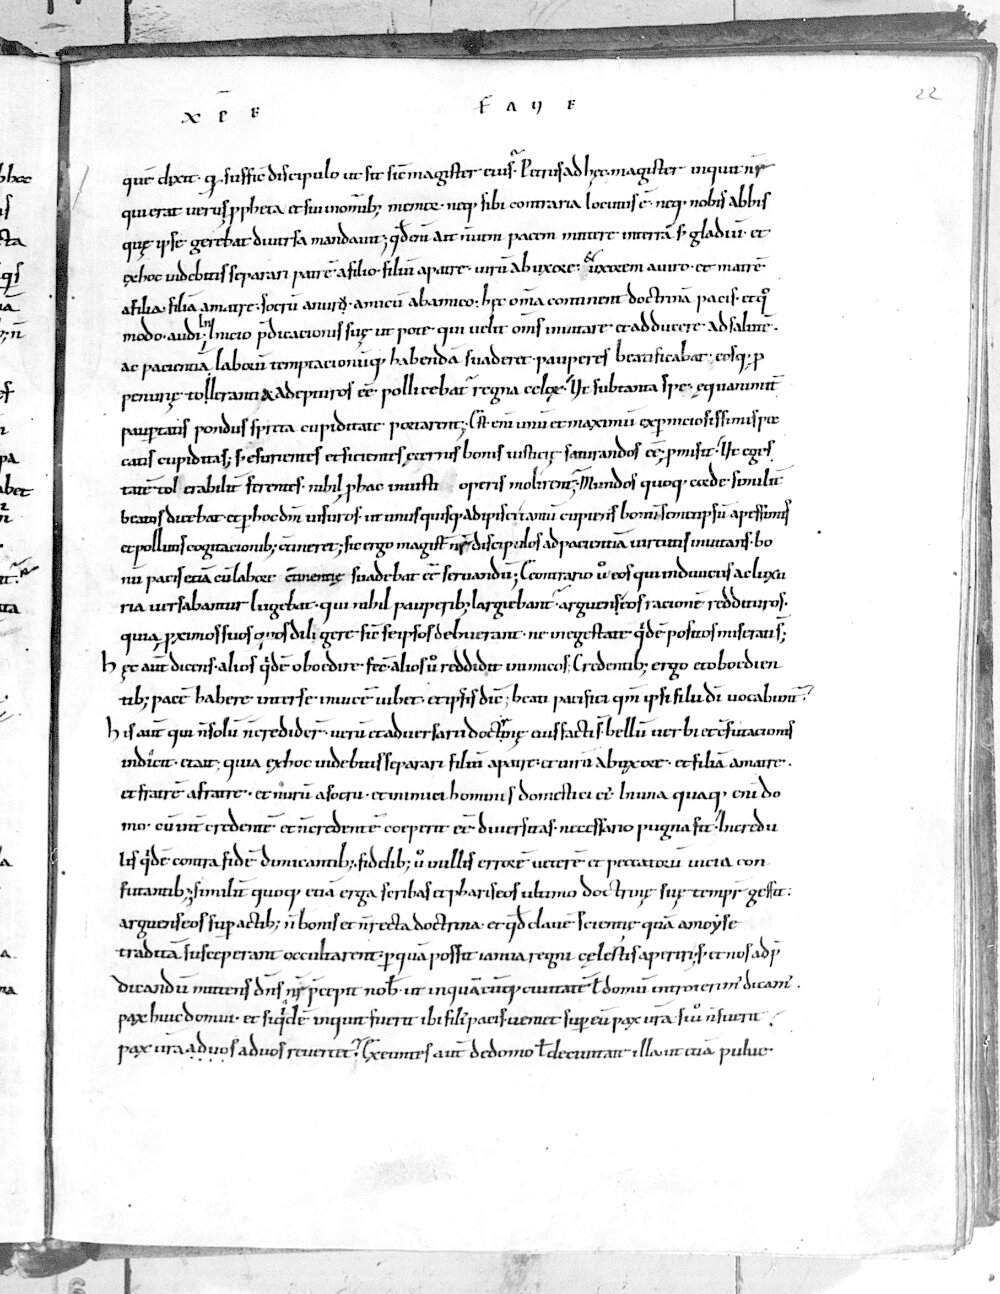 xp̄e faue
22
quē dixit· q̄ sufficē discipulo ut sit sic̄ magister eius· Petrus ad hęc magister inquit nr̄
qui erat uerus ꝓpheta et sui in omnib; memor· neq; sibi contraria locutus ē· neq; nobis ab his
quę ipse gerebat diuersa mandauit; qd̄ enī ait n̄ ueni pacem mittere in terrā s; gladiū· et
ex hoc uidebitis separari patrē a filio· filiū a patre· uirū ab uxore· & uxorem a uiro· et matrē
a filia· filiā a matre· socrū a nuru· amicū ab amico· hęc om̄a continent doctrinā pacis· et q̊
modo· audi; In inicio p̄dicacionis suę ut pote· qui uelit om̄s inuitare et adducere ad salutē·
ac pacientiā laborū temptacionūq; habendā suaderet· pauperes beatificabat· eosq; ꝓ
penurię tollerantia adepturos eē pollicebat᷑ regna celoꝝ· Ut sub tanta spe· equanimit̄
paupertatis pondus spreta cupiditate portarent; Est enī unū et maximū ex perniciosissimis pec
catis cupiditas; s; esurientes et sicientes ęternis bonis iusticię saturandos eē ꝓmisit· Ut eges
tatē tolerabilit̄ ferentes· nihil ꝓ hac iniusti operis molirent᷑; Mundos quoq; corde similit̄
beatos dicebat et ꝑ hoc dm̄ uisuros· ut unus quisq; adipisci tantū cupiens bonū semetipsū a pessimis
et pollutis cogitacionib; c̄tineret; sic ergo magist̄ nr̄ discipulos ad pacientiā uirtutis inuitans· bo
nū pacis etiā cū labore c̄tinentię suadebat eē seruandū; E contrario ů eos qui in diuiciis ac luxu
ria uersabantur lugebat· qui nihil pauperib; largiebant᷑ arguens eos racionē reddituros·
quia ꝓximos suos quos diligere sic̄ se ipsos debuerant· ne in egestate qidē positos miserati s̄;
hęc aut̄ dicens· alios qidē oboedire fec̄ alios ů reddidit inimicos; Credentib; ergo et oboedien
tib; pacē habere inter se inuicē iubet· et ipsis dic̄; beati pacifici qm̄ ipsi filii di uocabunt᷑
his aut̄ qui n̄ solū n̄ credider̄· uerū et aduersarii doctrinę eius facti s̄· bellū uerbi et c̄futacionis
indicit· et ait; quia ex hoc uidebitis separari filiū a patre· et uirū ab uxore· et filiā a matre·
et fratrē a fratre· et nurū a socru· et inimici hominis domestici ei᷒· In una quaq; enī do
mo· cū int̄ credentē et n̄ credentē coeperit eē diuersitas· necessario pugna fit· Incredu
lis qidē contra fidē dimicantib; fidelib; ů in illis errorē ueterē et peccatorū uicia con
futantib; similit̄ quoq; etiā erga scribas et phariseos ultimo doctrinę suę tempr̄ gessit·
arguens eos sup actib; n̄ bonis et n̄ recta doctrina· et qd̄ clauē scientię quā a moyse
traditā susceperant occultarent· ꝑ quā possit ianua regni cęlestis aperiri; s; et nos ad p̄
dicandū mittens dn̄s nr̄ p̄cepit nob̄· ut in quācūq; ciuitatē ł domū introierim᷒ dicam᷒·
pax huic domui· et siqidē inquit fuerit ibi fili᷒ pacis ueniet sup eū pax ura· si ů n̄ fuerit
pax ura ad uos ad uos reuertet᷑ Exeuntes aut̄ de domo ł de ciuitate illa ut etiā pulue